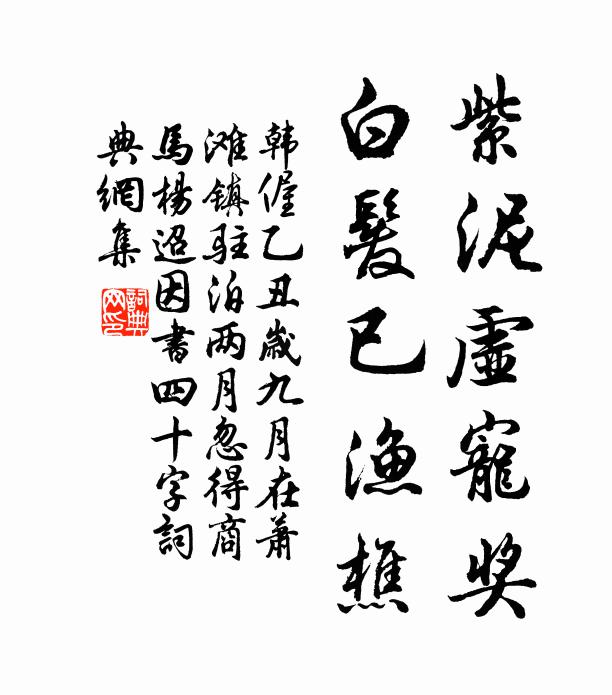 紫泥虛寵奖
白髮已渔樵
韩偓乙丑歲九月在萧
滩镇駐泊两月忽得商
馬楊迢因書四十字詞
典網集
詞典网印